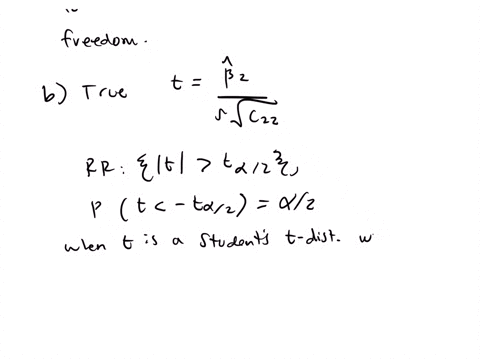 freedom.
b) True t = β̂2 / s√C22
RR: {|t| > tα/2},
P (t < -tα/2) = α/2
when t is a student's t-dist. w